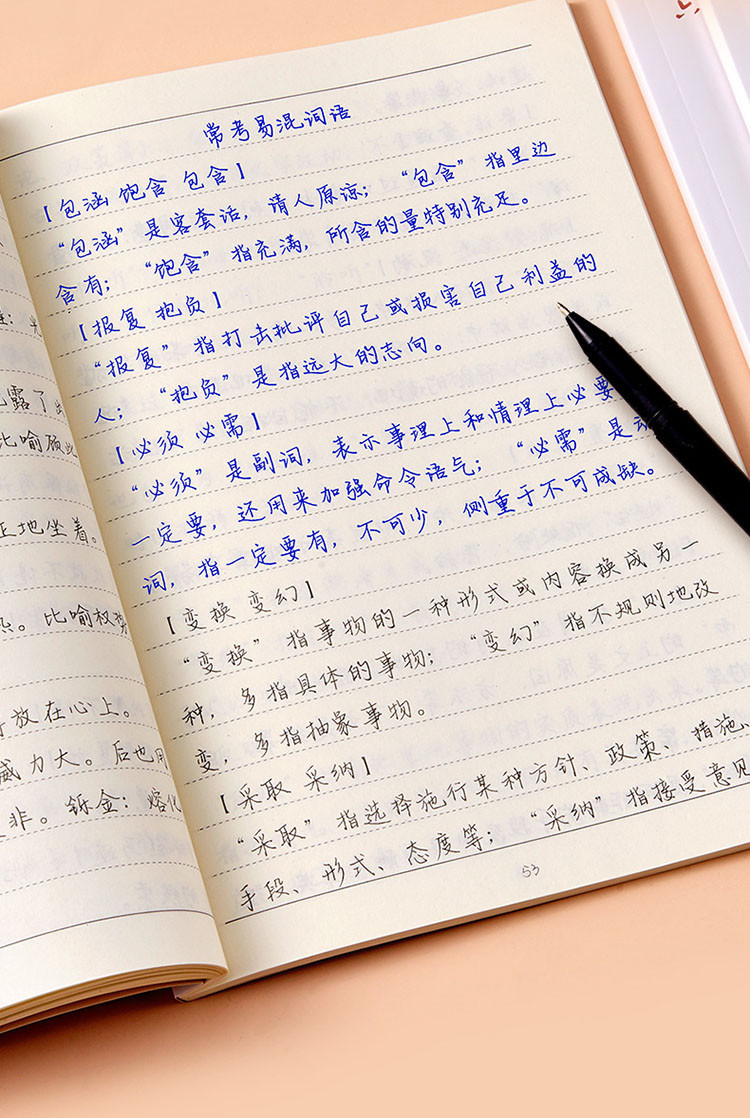 露了
比喻
正地坐着。
。比喻权势
放在心上。
威力大。后也用
非。铄金：熔化
常考易混词语
【包涵 饱含 包含】
“包涵”是客套话，请人原谅；“包含”指里边
含有；“饱含”指充满，所含的量特别充足。
【报复 抱负】
“报复”指打击批评自己或损害自己利益的
人；“抱负”是指远大的志向。
【必须 必需】
“必须”是副词，表示事理上和情理上必要
一定要，还用来加强命令语气；“必需”是动
词，指一定要有，不可少，侧重于不可或缺。
【变换 变幻】
“变换”指事物的一种形式或内容换成另一
种，多指具体的事物；“变幻”指不规则地改
变，多指抽象事物。
【采取 采纳】
“采取”指选择施行某种方针、政策、措施、
手段、形式、态度等；“采纳”指接受意见
53